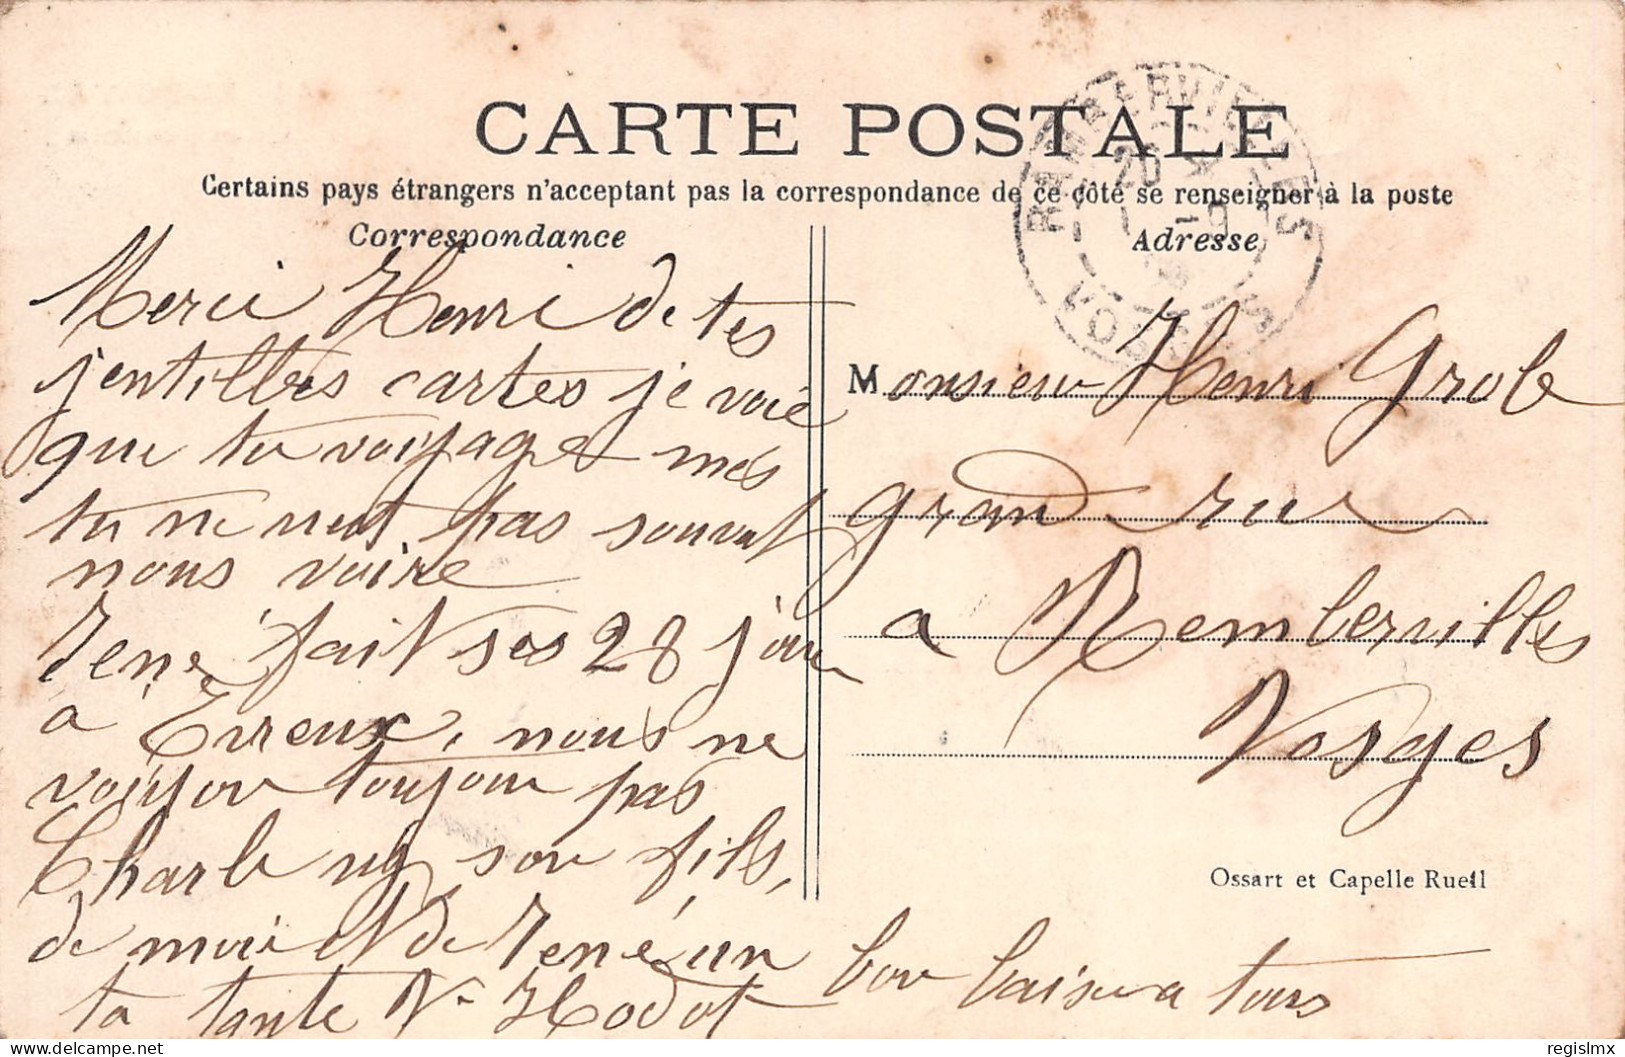 CARTE POSTALE
Certains pays étrangers n'acceptant pas la correspondance de ce côté se renseigner à la poste
Correspondance
Adresse
RAMBERVILLERS
VOSGES
Merci Henri de tes
jentilles cartes je voie
que tu voiyage mes
tu ne veut pas souvent
nous voire
René fait ses 28 jour
a Evreux, nous ne
voiyon toujour pas
Charle ni son fils,
de moi et de René, un
bon baiser a tous
ta tante Ve Hodot
Monsieur Henri Grole
grand rue
a Rembervilles
Vosges
Ossart et Capelle Rueil
regislmx